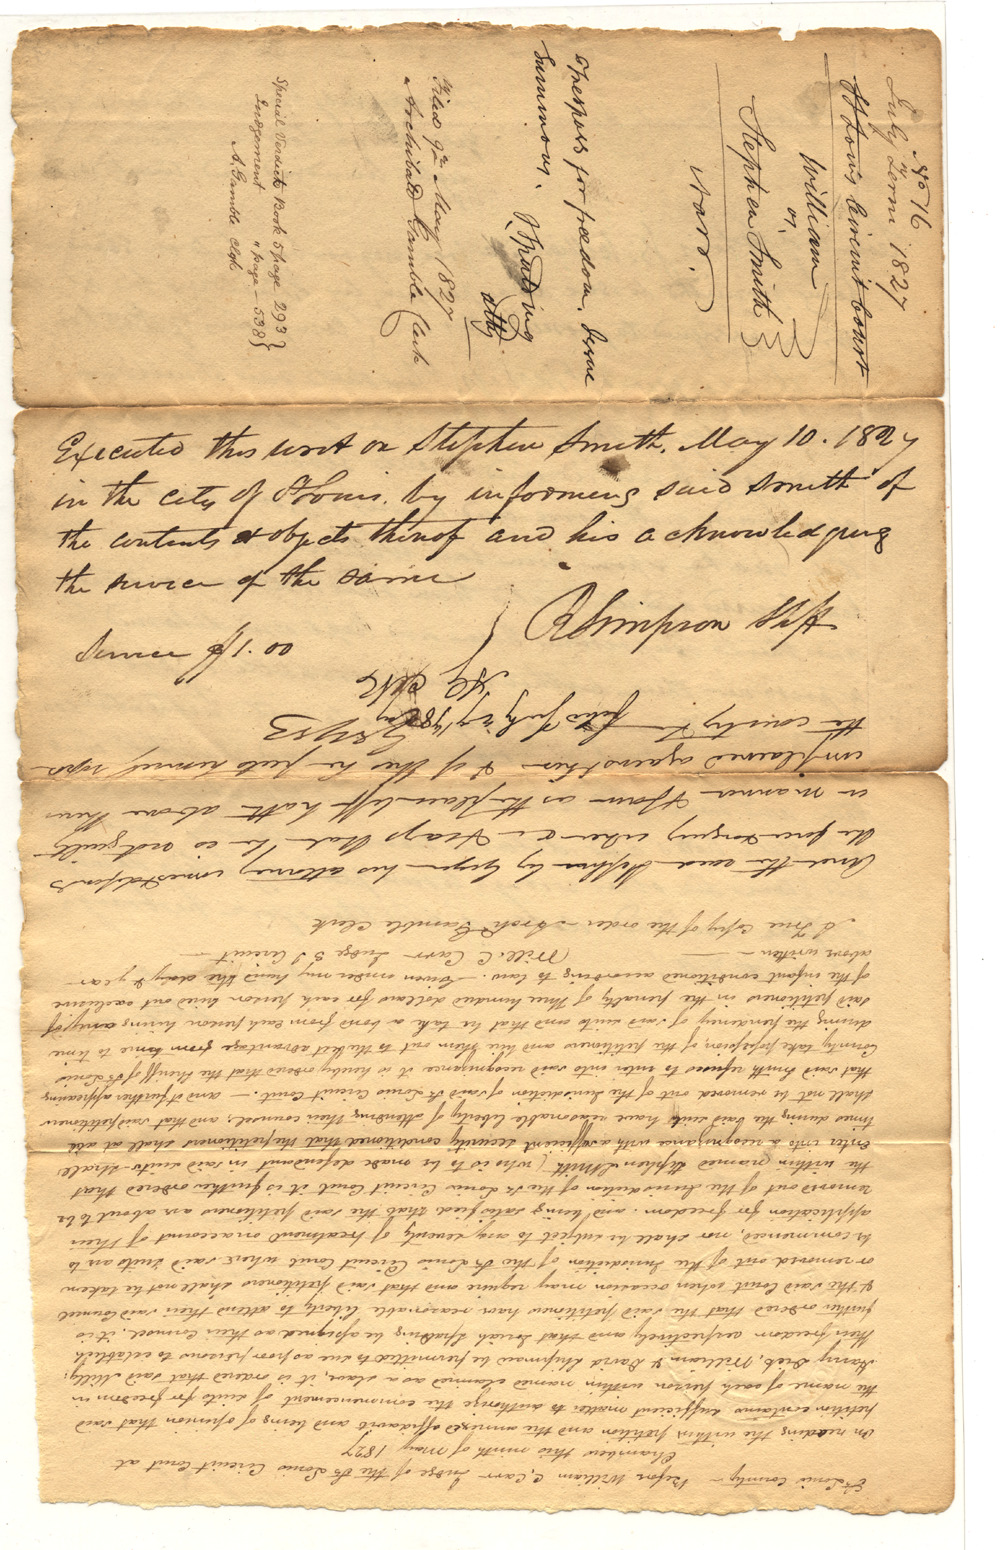 No 16
July Term 1827
St Louis Circuit Court
William
vs.
Stephen Smith
Narr.
Trespass for freedom. Issue
Summons.
Spalding
atty.
Filed 9th May 1827
Archibald Gamble Clerk
Special Verdict Book 5 page 293
Judgement " page - 538
A. Gamble Clk
Executed this writ on Stephen Smith. May 10. 1827
in the city of St Louis. by informing said Smith of
the contents & objects thereof and his acknowledging
the service of the same
R Simpson Shff
Service $1.00
St Louis County - Before William C. Carr Judge of the St Louis Circuit Court at
Chambers this ninth of May 1827
On reading the within petition and the annexed affidavit and being of opinion that said
petition contains sufficient matter to authorize the commencement of suits for freedom in
the name of each person within named claimed as a slave, it is ordered that said Milly,
Harry, Dick, William & David Shipman be permitted to sue as poor persons to establish
their freedom respectively and that Josiah Spalding be assigned as their Counsel, it is
further ordered that the said petitioners have reasonable liberty to attend their said Counsel
& the said Court when occasion may require and that said petitioners shall not be taken
or removed out of the Jurisdiction of the St Louis Circuit Court where said suits are to
be commenced, nor shall be subject to any severity of treatment on account of their
application for freedom. and being satisfied that the said petitioners are about to be
removed out of the Jurisdiction of the St Louis Circuit Court it is further ordered that
the within named Stephen Smith (who is to be made defendant in said suits) shall
enter into a recognizance with a sufficient security conditioned that the petitioners shall at all
times during the said suits have reasonable liberty of attending their counsel; and that said petitioners
shall not be removed out of the Jurisdiction of said St Louis Circuit Court. - and it further appearing
that said Smith refused to enter into said recognizance it is hereby ordered that the Sheriff of St Louis
County take possession of the petitioners and hire them out to the best advantage from time to time
during the pendency of said suits and that he take a bond from each person hiring any of
said petitioners in the penalty of three hundred dollars for each person hired out exclusive
of the infant conditioned according to law. - Given under my hand the day & year
above written - Will: C. Carr Judge 3 J Circuit -
A True Copy of the order - Arch: Gamble Clerk
And the said Stephen by Geyer his attorney comes & defends
the force & injury when &c & says that he is not guilty
in manner & form as the plaintiff hath above there
complained against him & of this he puts himself upon
the county &c
Geyer
filed July 27 1827
AG Clk